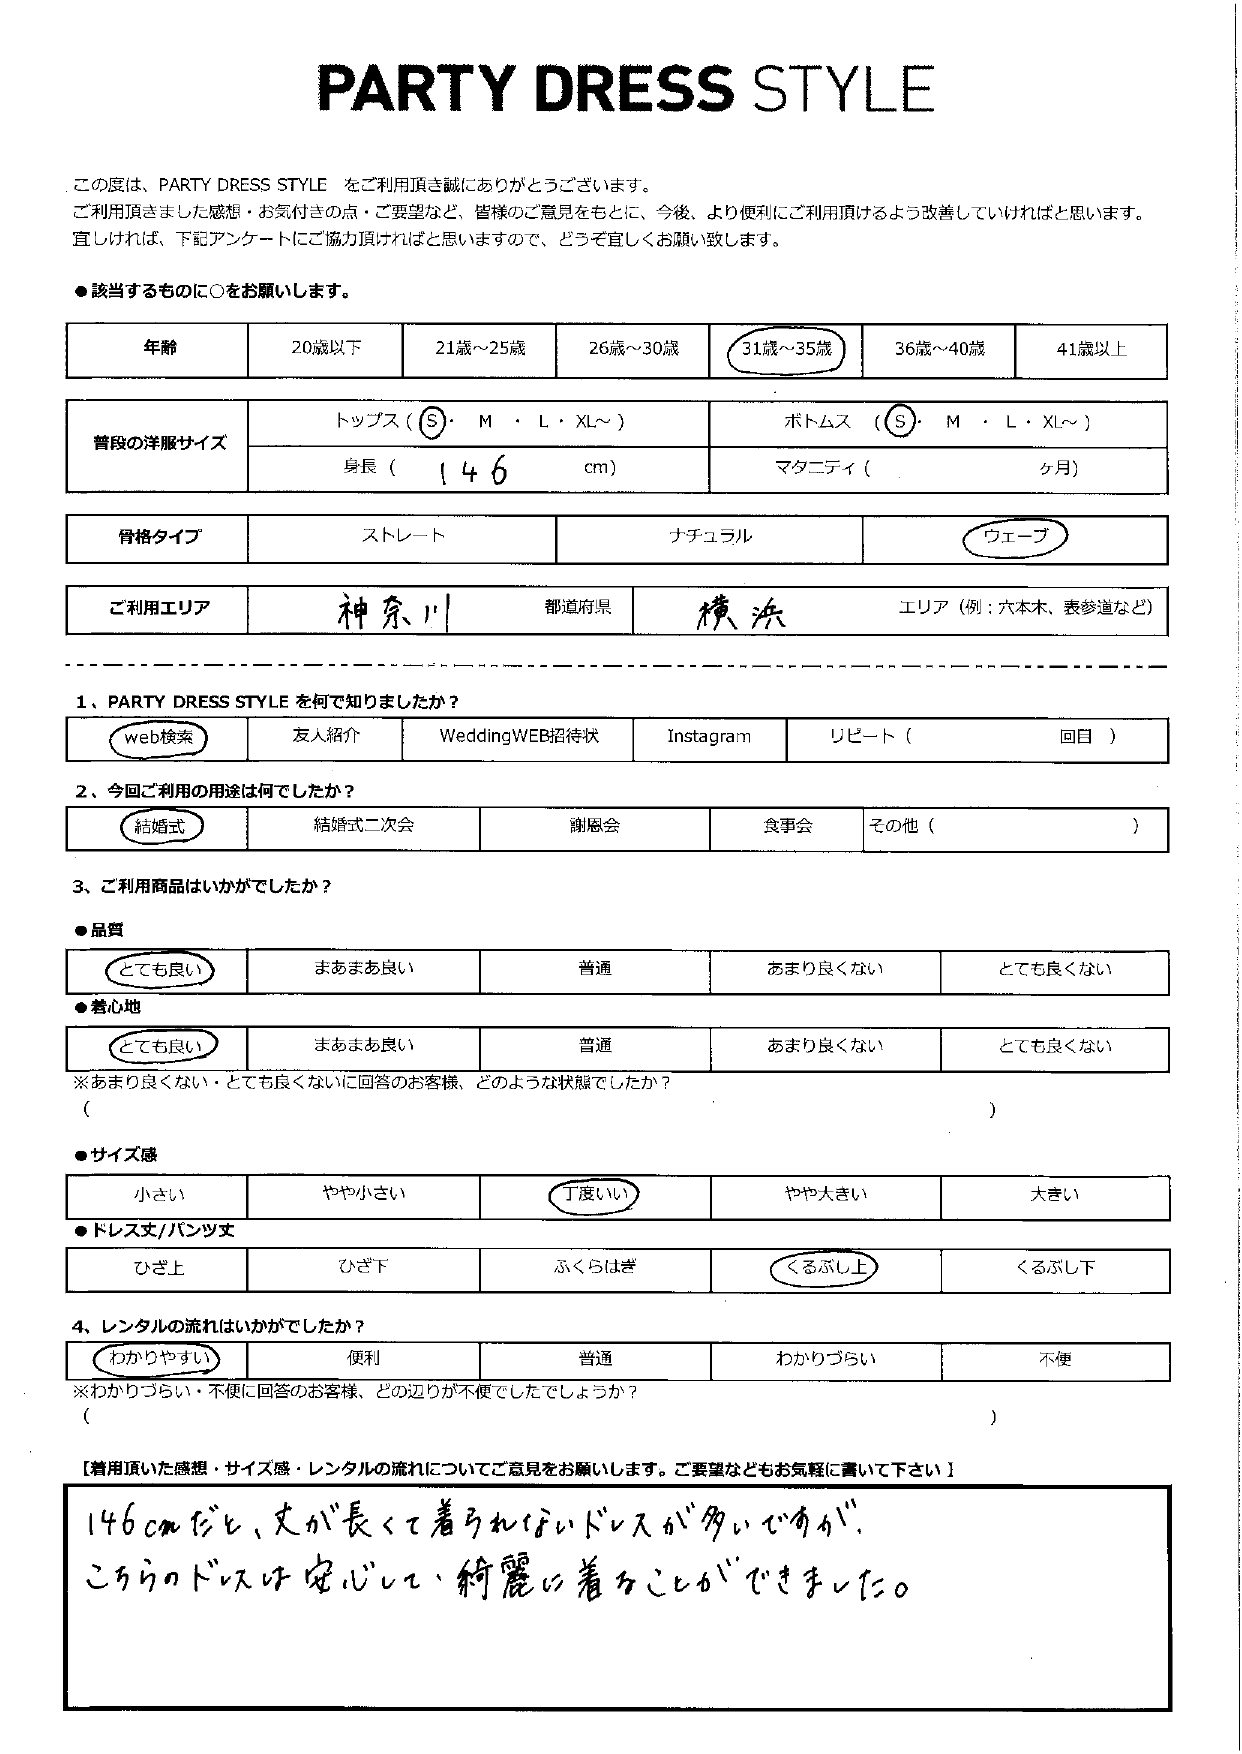 PARTY DRESS STYLE
この度は、PARTY DRESS STYLE をご利用頂き誠にありがとうございます。
ご利用頂きました感想・お気付きの点・ご要望など、皆様のご意見をもとに、今後、より便利にご利用頂けるよう改善していければと思います。
宜しければ、下記アンケートにご協力頂ければと思いますので、どうぞ宜しくお願い致します。
●該当するものに○をお願いします。
年齢 20歳以下 21歳～25歳 26歳～30歳 31歳～35歳 36歳～40歳 41歳以上
普段の洋服サイズ トップス ( S ・ M ・ L ・ XL～ ) ボトムス ( S ・ M ・ L ・ XL～ )
身長 ( 146 cm) マタニティ ( ヶ月)
骨格タイプ ストレート ナチュラル ウェーブ
ご利用エリア 神奈川 都道府県 横浜 エリア（例：六本木、表参道など）
1、PARTY DRESS STYLE を何で知りましたか？
web検索 友人紹介 WeddingWEB招待状 Instagram リピート ( 回目 )
2、今回ご利用の用途は何でしたか？
結婚式 結婚式二次会 謝恩会 食事会 その他 ( )
3、ご利用商品はいかがでしたか？
●品質
とても良い まあまあ良い 普通 あまり良くない とても良くない
●着心地
とても良い まあまあ良い 普通 あまり良くない とても良くない
※あまり良くない・とても良くないに回答のお客様、どのような状態でしたか？
( )
●サイズ感
小さい やや小さい 丁度いい やや大きい 大きい
●ドレス丈/パンツ丈
ひざ上 ひざ下 ふくらはぎ くるぶし上 くるぶし下
4、レンタルの流れはいかがでしたか？
わかりやすい 便利 普通 わかりづらい 不便
※わかりづらい・不便に回答のお客様、どの辺りが不便でしたでしょうか？
( )
【着用頂いた感想・サイズ感・レンタルの流れについてご意見をお願いします。ご要望などもお気軽に書いて下さい】
146cmだと、丈が長くて着られないドレスが多いですが、
こちらのドレスは安心して、綺麗に着ることができました。